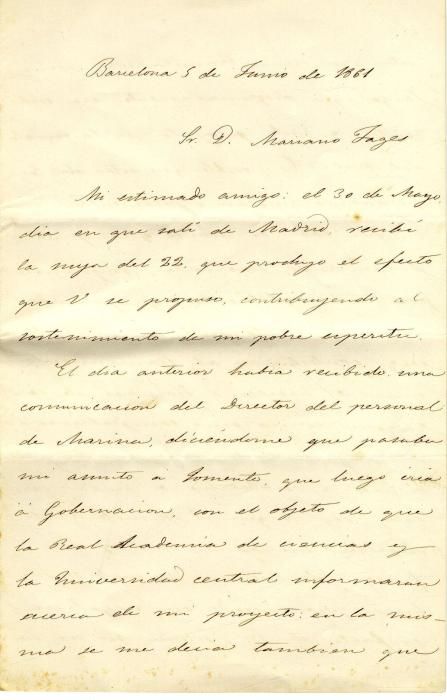 Barcelona 5 de Junio de 1861
Sr. D. Mariano Fages
Mi estimado amigo: el 30 de Mayo,
dia en que salí de Madrid, recibí
la suya del 22, que produjo el efecto
que V se propuso, contribuyendo al
sostenimiento de mi pobre espiritu.
El dia anterior habia recibido una
comunicacion del Director del personal
de Marina, diciéndome que pasaba
mi asunto a Fomento, que luego iria
á Gobernacion, con el objeto de que
la Real Academia de ciencias y
la Universidad central informaran
acerca de mi proyecto: en la mis-
ma se me decia tambien que